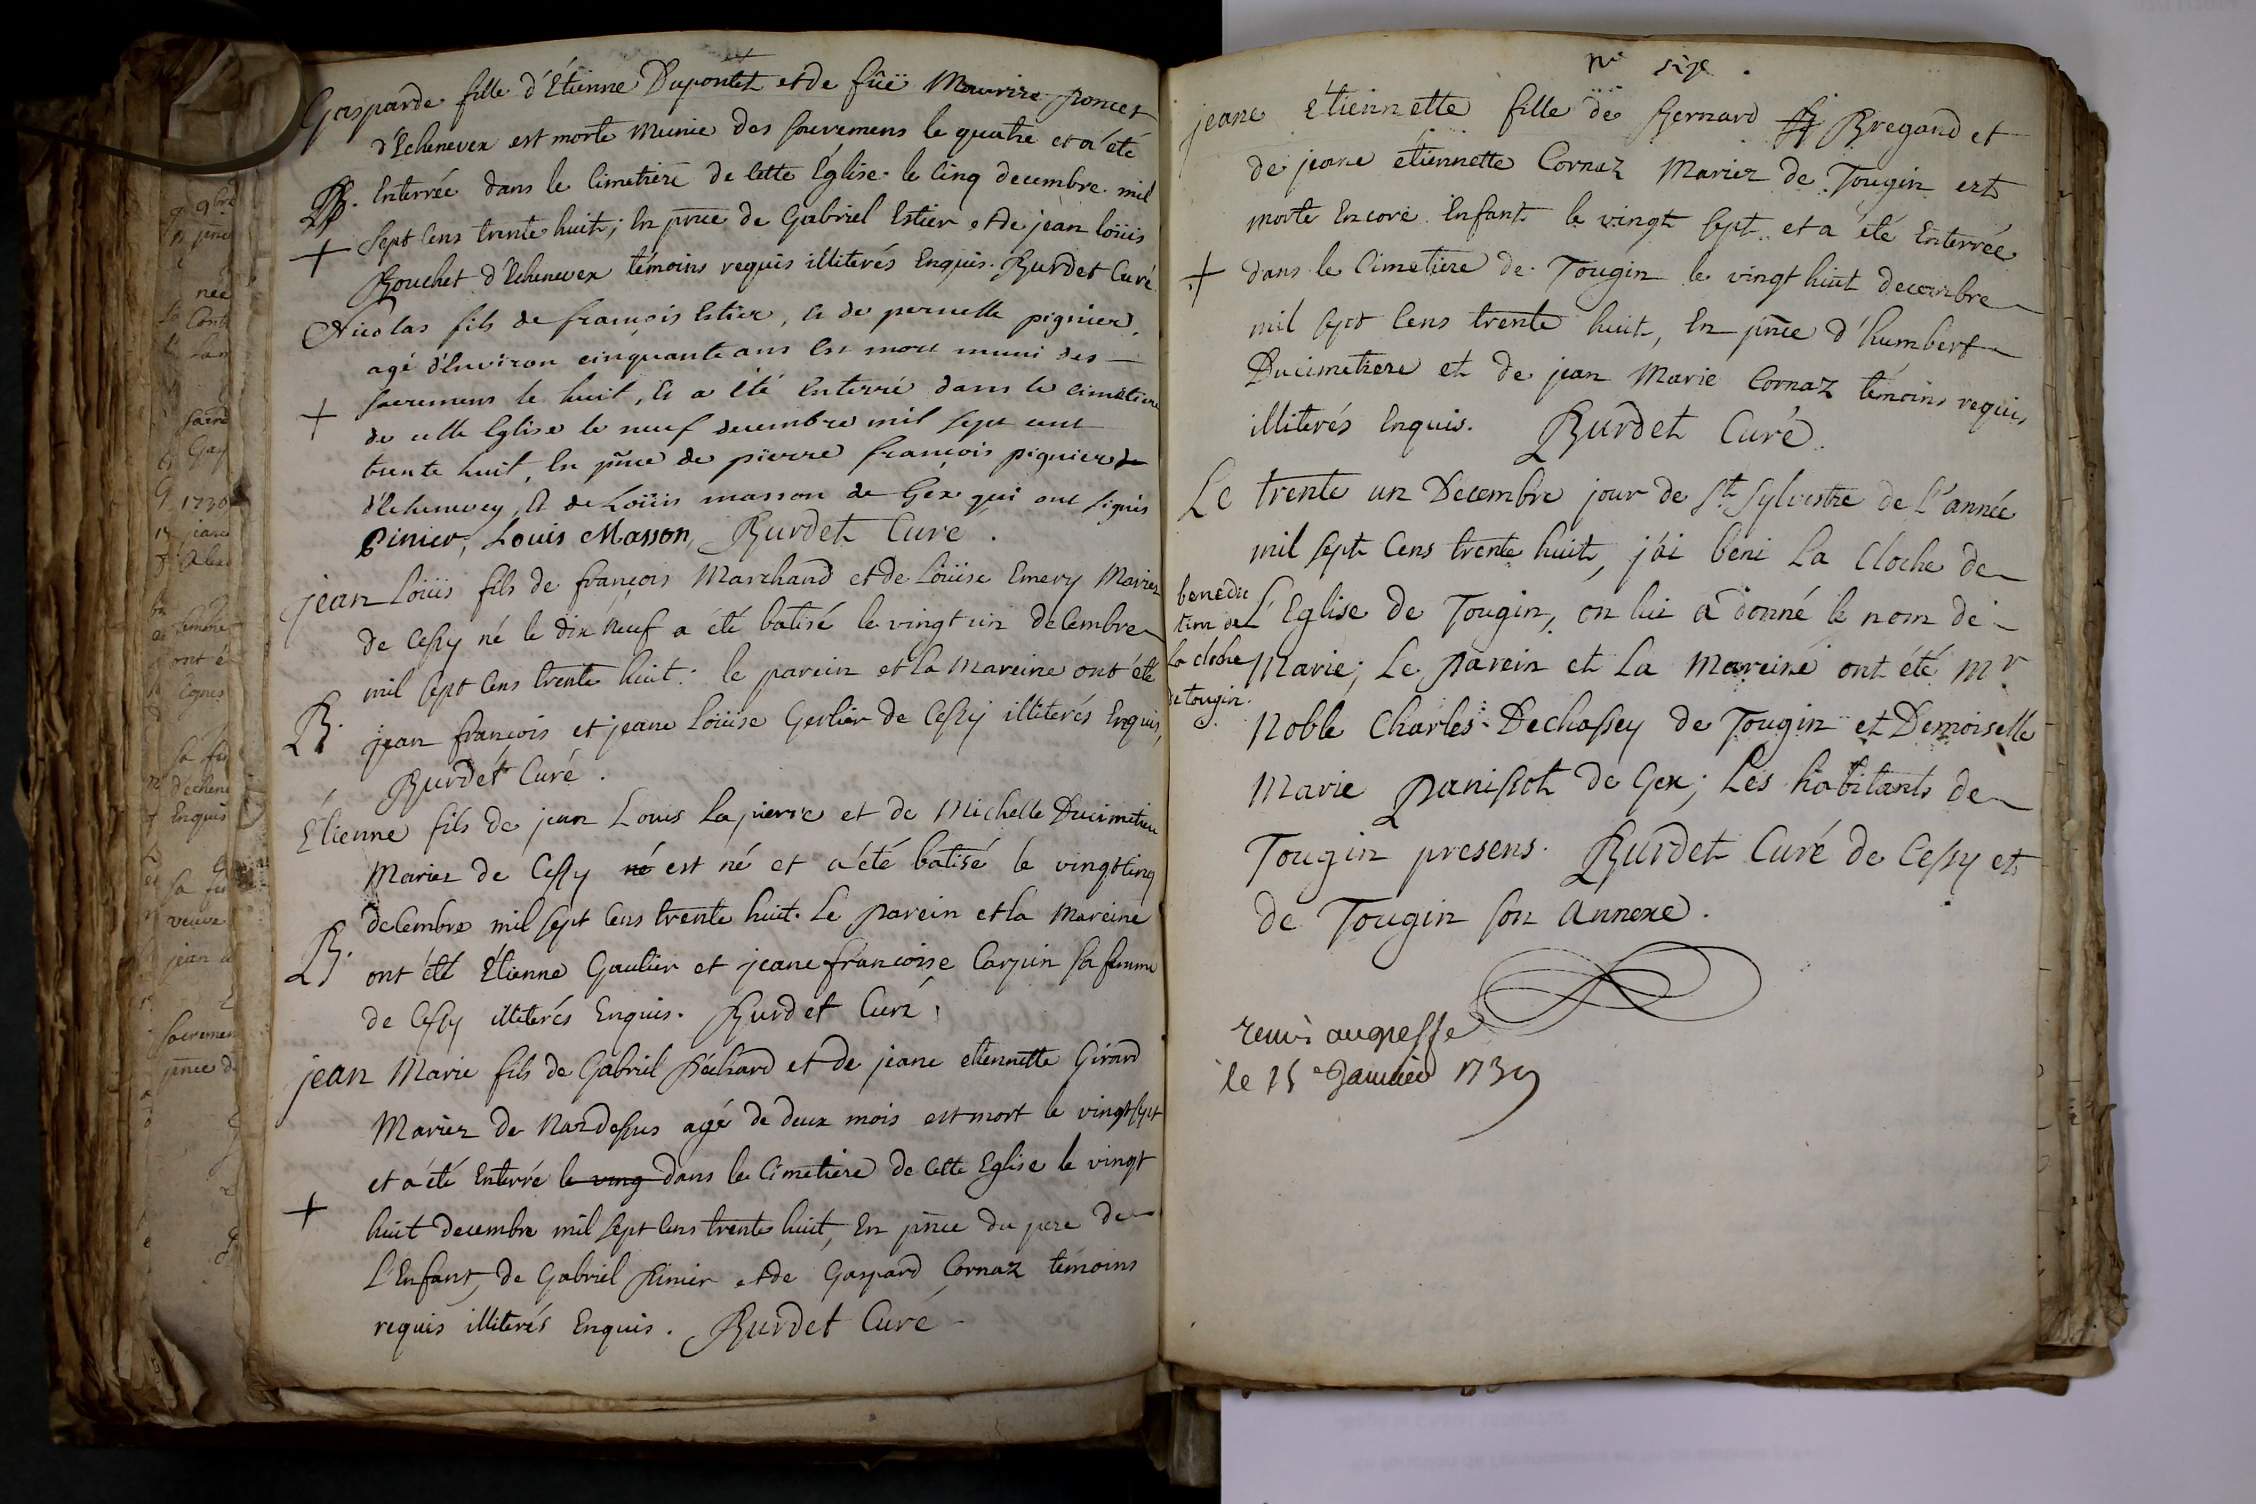 Gasparde fille d'Étienne Dupontet et de füe Maurize Poncet
d'Echenevex est morte Munie des sacremens le quatre et a été
Enterrée dans le Cimetiere de Cette Église le Cinq decembre mil
+ sept Cens trente huit; En pnce de Gabriel Estier et de jean loüis
Bouchet d'Echenevex témoins requis illiterés Enquis. Burdet Curé
Nicolas fils de françois Estier, et de pernette pignier,
agé d'Environ cinquante ans Est mort muni des
sacremens le huit, Et a Été Enterré dans le cimetiere
+ de cette Eglise le neuf decembre mil sept cent
trente huit, En pnce de pierre françois pignier
d'Echenevex, Et de Loüis masson de Gex qui ont signés
Pinier, Louis Masson, Burdet Curé.
jean Loüis fils de françois Marchand et de Loüise Emery Mariez
de Cessy né le dix neuf a été batisé le vingt un decembre
mil sept Cens trente huit: le parein et la Mareine ont été
B. jean françois et jeane Loüise Gerlier de Cessy illiterés Enquis,
Burdet Curé.
Étienne fils de jean Louis Lapierre et de Michelle Ducimetiere
Mariez de Cessy né est né et a été batisé le vingt Cinq
decembre mil sept Cens trente huit. Le parein et la Mareine
B. ont été Étienne Gautier et jeane françoise Carpin sa femme
de Cessy illiterés Enquis. Burdet Curé.
jean Marie fils de Gabriel Péchard et de jeane etiennette Girard
Mariez de Nazdessus agé de deux mois est mort le vingt sept
et a été Enterré le ving dans le Cimetiere de Cette Eglise le vingt
+ huit decembre mil sept Cens trente huit, En pnce du pere de
L'Enfant, de Gabriel Pinier et de Gaspard Cornaz témoins
requis illiterés Enquis. Burdet Curé
no six.
jeane Etiennette fille de Bernard Bregand et
de jeane etiennette Cornaz Mariez de Tougin est
morte Encore Enfant le vingt sept et a été Enterrée
+ dans le Cimetiere de Tougin le vingt huit decembre
mil sept Cens trente huit, En pnce d'humbert
Ducimetiere et de jean Marie Cornaz témoins requis
illiterés Enquis. Burdet Curé.
Le trente un Decembre jour de St. Sylvestre de l'année
mil sept Cens trente huit, j'ai beni La Cloche de
L'Eglise de Tougin, on lui a donné le nom de
Marie; Le parein et La Mareine ont été Mr
Noble Charles Dechassey de Tougin et Demoiselle
Marie Panissot de Gex; Les habitants de
Tougin presens. Burdet Curé de Cessy et
de Tougin son Annexe.
benedic
tion de
La cloche
de tougin.
remis au greffe
le 15e Janvier 1739